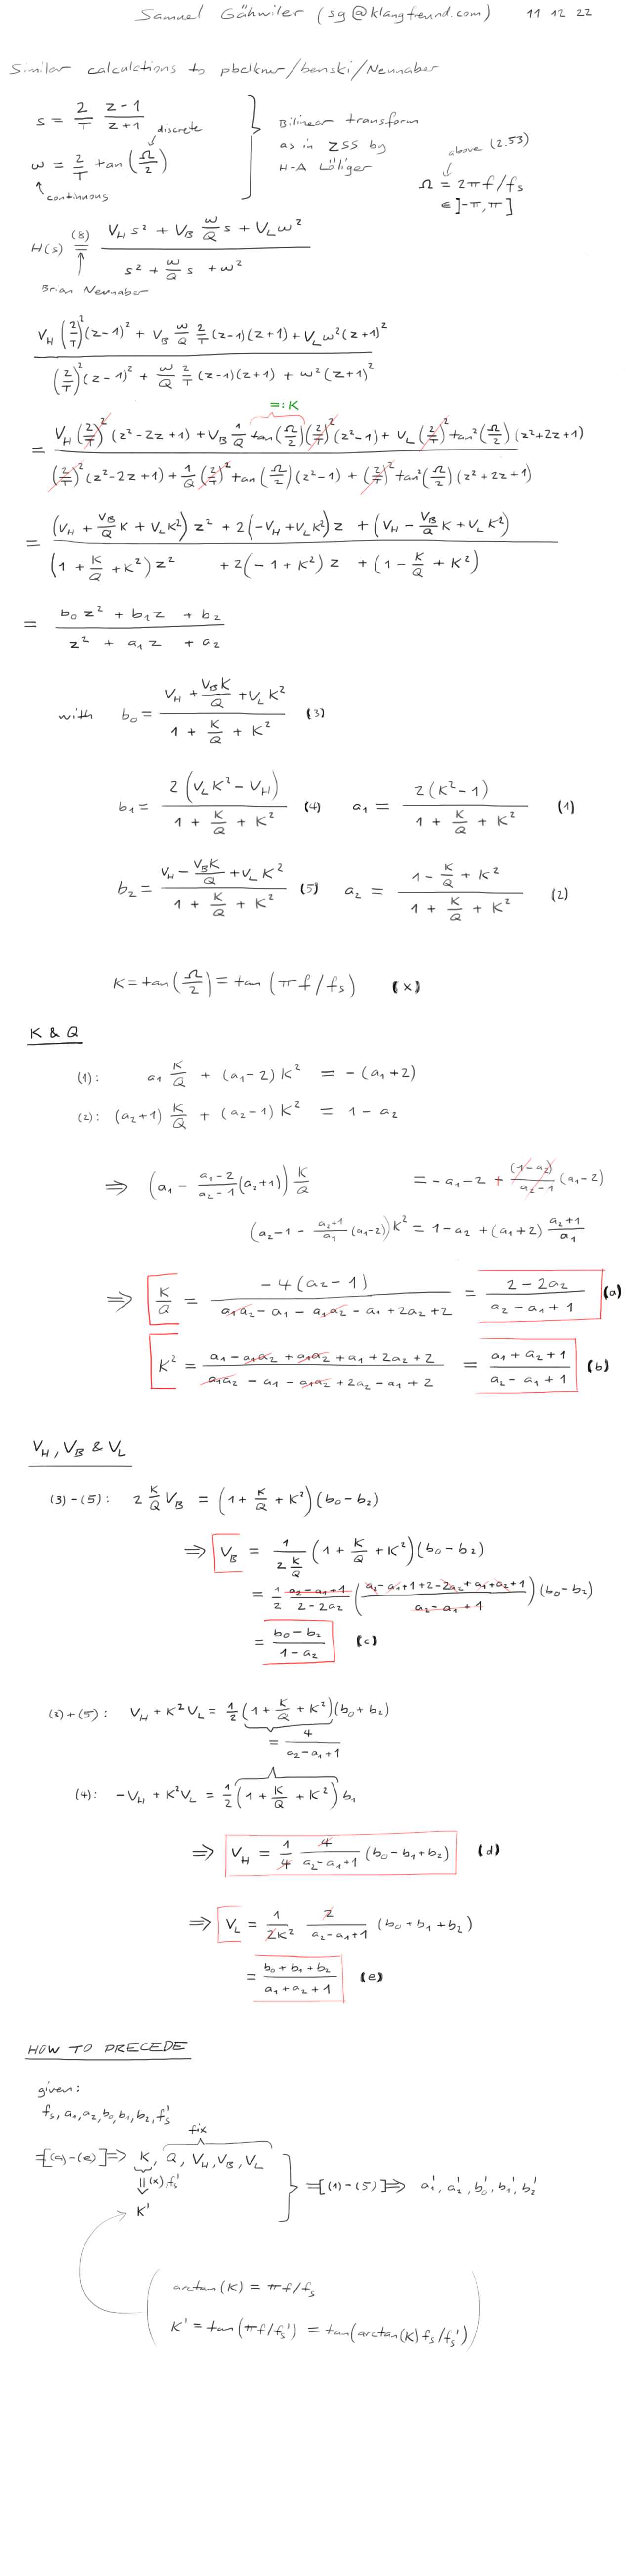 Samuel Gähwiler (sg@klangfreund.com) 11 12 22
Similar calculations to pbdlknw/benski/Neunaber
s = 2/T (z-1)/(z+1)
discrete
ω = 2/T tan(Ω/2)
continuous
Bilinear transform
as in ZSS by
H-A Löliger
above (2.53)
Ω = 2πf/fs
∈ ]-π,π]
H(s) (8) = (V_H s² + V_B ω/Q s + V_L ω²) / (s² + ω/Q s + ω²)
Brian Neunaber
(V_H (2/T)² (z-1)² + V_B ω/Q 2/T (z-1)(z+1) + V_L ω² (z+1)²) / ((2/T)² (z-1)² + ω/Q 2/T (z-1)(z+1) + ω² (z+1)²)
=: K
= (V_H (2/T)² (z²-2z+1) + V_B 1/Q tan(Ω/2) (2/T)² (z²-1) + V_L (2/T)² tan²(Ω/2) (z²+2z+1)) / ((2/T)² (z²-2z+1) + 1/Q (2/T)² tan(Ω/2) (z²-1) + (2/T)² tan²(Ω/2) (z²+2z+1))
= ((V_H + V_B/Q K + V_L K²) z² + 2(-V_H + V_L K²) z + (V_H - V_B/Q K + V_L K²)) / ((1 + K/Q + K²) z² + 2(-1 + K²) z + (1 - K/Q + K²))
= (b₀ z² + b₁ z + b₂) / (z² + a₁ z + a₂)
with b₀ = (V_H + V_B K/Q + V_L K²) / (1 + K/Q + K²) (3)
b₁ = 2(V_L K² - V_H) / (1 + K/Q + K²) (4) a₁ = 2(K²-1) / (1 + K/Q + K²) (1)
b₂ = (V_H - V_B K/Q + V_L K²) / (1 + K/Q + K²) (5) a₂ = (1 - K/Q + K²) / (1 + K/Q + K²) (2)
K = tan(Ω/2) = tan(πf/fs) (x)
K & Q
(1): a₁ K/Q + (a₁-2) K² = -(a₁+2)
(2): (a₂+1) K/Q + (a₂-1) K² = 1 - a₂
⇒ (a₁ - (a₁-2)/(a₂-1) (a₂+1)) K/Q = -a₁-2 + (1-a₂)/(a₂-1) (a₁-2)
(a₂-1 - (a₂+1)/a₁ (a₁-2)) K² = 1-a₂ + (a₁+2) (a₂+1)/a₁
⇒ K/Q = -4(a₂-1) / (a₁a₂ - a₁ - a₁a₂ - a₁ + 2a₂ + 2) = (2-2a₂) / (a₂-a₁+1) (a)
K² = (a₁ - a₁a₂ + a₁a₂ + a₁ + 2a₂ + 2) / (a₁a₂ - a₁ - a₁a₂ + 2a₂ - a₁ + 2) = (a₁+a₂+1) / (a₂-a₁+1) (b)
V_H, V_B & V_L
(3)-(5): 2 K/Q V_B = (1 + K/Q + K²)(b₀-b₂)
⇒ V_B = 1/(2 K/Q) (1 + K/Q + K²)(b₀-b₂)
= 1/2 (a₂-a₁+1)/(2-2a₂) ((a₂-a₁+1+2-2a₂+a₁+a₂+1)/(a₂-a₁+1)) (b₀-b₂)
= (b₀-b₂)/(1-a₂) (c)
(3)+(5): V_H + K²V_L = 1/2 (1 + K/Q + K²)(b₀+b₂)
= 4/(a₂-a₁+1)
(4): -V_H + K²V_L = 1/2 (1 + K/Q + K²) b₁
⇒ V_H = 1/4 4/(a₂-a₁+1) (b₀-b₁+b₂) (d)
⇒ V_L = 1/(2K²) 2/(a₂-a₁+1) (b₀+b₁+b₂)
= (b₀+b₁+b₂)/(a₁+a₂+1) (e)
HOW TO PRECEDE
given:
fs, a₁, a₂, b₀, b₁, b₂, fs'
fix
=[(a)-(e)]⇒ K, Q, V_H, V_B, V_L
(x), fs'
K'
=[(1)-(5)]⇒ a₁', a₂', b₀', b₁', b₂'
arctan(K) = πf/fs
K' = tan(πf/fs') = tan(arctan(K) fs/fs')